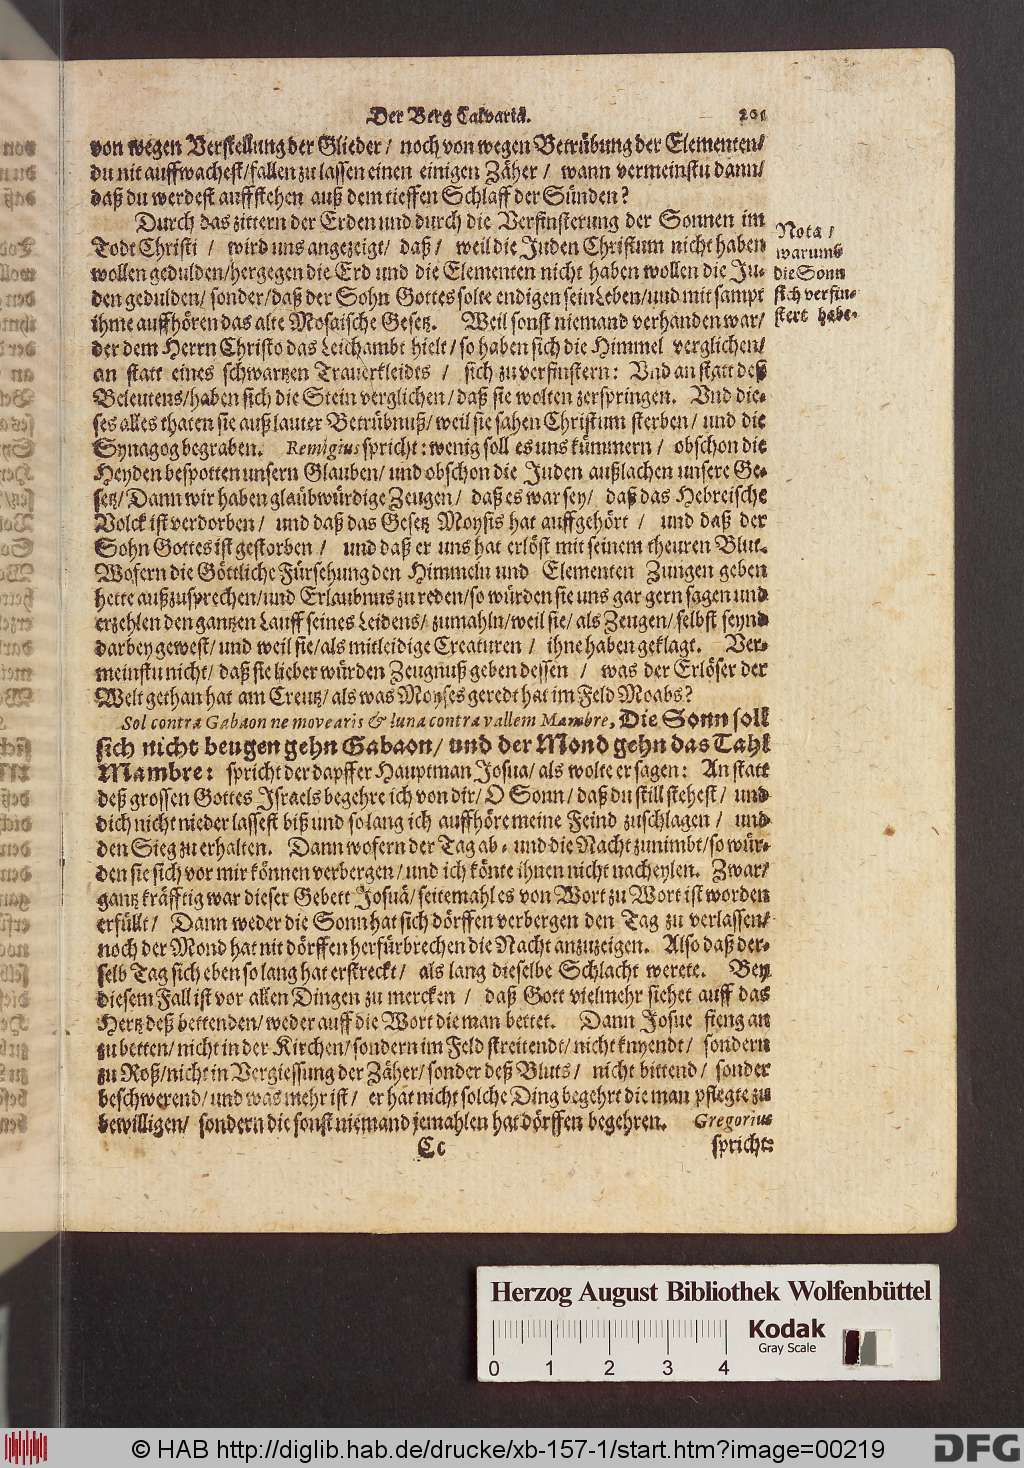 Der Berg Calvariæ. 201
von wegen Verstellung der Glieder / noch von wegen Betrübung der Elementen /
du nit auffwachest / fallen zu lassen einen einigen Zäher / wann vermeinstu dann /
daß du werdest auffstehen auß dem tieffen Schlaff der Sünden?
Durch das zittern der Erden und durch die Verfinsterung der Sonnen im
Todt Christi / wird uns angezeigt / daß / weil die Juden Christum nicht haben
wollen gedulden / hergegen die Erd und die Elementen nicht haben wollen die Ju-
den gedulden / sonder / daß der Sohn Gottes solte endigen sein Leben / und mit sampt
ihme auffhören das alte Mosaische Gesetz. Weil sonst niemand verhanden war /
der dem Herrn Christo das Leichambt hielt / so haben sich die Himmel verglichen /
an statt eines schwartzen Trauerkleidts / sich zu verfinstern: Und an statt deß
Beleutens / haben sich die Stein verglichen / daß sie wolten zerspringen. Und die-
ses alles thaten sie auß lauter Betrübnuß / weil sie sahen Christum sterben / und die
Synagog begraben. Remigius spricht: wenig soll es uns kümmern / obschon die
Heyden bespotten unsern Glauben / und obschon die Juden außlachen unsere Ge-
setz / Dann wir haben glaubwürdige Zeugen / daß es war sey / daß das Hebreische
Volck ist verdorben / und daß das Gesetz Moysis hat auffgehört / und daß der
Sohn Gottes ist gestorben / und daß er uns hat erlöst mit seinem theuren Blut.
Wofern die Göttliche Fürsehung den Himmeln und Elementen Zungen geben
hette außzusprechen / und Erlaubnus zu reden / so würden sie uns gar gern sagen und
erzehlen den gantzen Lauff seines Leidens / zumahln / weil sie / als Zeugen / selbst seynd
darbey gewest / und weil sie / als mitleidige Creaturen / ihne haben geklagt. Ver-
meinstu nicht / daß sie lieber würden Zeugnuß geben dessen / was der Erlöser der
Welt gethan hat am Creutz / als was Moyses geredt hat im Feld Moabs?
Sol contra Gabaon ne movearis & luna contra vallem Mambre, Die Sonn soll
sich nicht beugen gehn Gabaon / und der Mond gehn das Tahl
Mambre: spricht der dapffer Hauptman Josua / als wolte er sagen: An statt
deß grossen Gottes Israels begehre ich von dir / O Sonn / daß du still stehest / und
dich nicht nieder lassest biß und so lang ich auffhöre meine Feind zuschlagen / und
den Sieg zu erhalten. Dann wofern der Tag ab- und die Nacht zunimbt / so wür-
den sie sich vor mir können verbergen / und ich könte ihnen nicht nacheylen. Zwar /
gantz kräfftig war dieser Gebett Josuä / seitemahl es von Wort zu Wort ist worden
erfüllt / Dann weder die Sonn hat sich dörffen verbergen den Tag zu verlassen /
noch der Mond hat nit dörffen herfürbrechen die Nacht anzuzeigen. Also daß der-
selb Tag sich eben so lang hat erstreckt / als lang dieselbe Schlacht werete. Bey
diesem Fall ist vor allen Dingen zu mercken / daß Gott vielmehr siehet auff das
Hertz deß bettenden / weder auff die Wort die man bettet. Dann Josue fieng an
zu betten / nicht in der Kirchen / sondern im Feld streitendt / nicht knyendt / sondern
zu Roß / nicht in Vergiessung der Zäher / sonder deß Bluts / nicht bittend / sonder
beschwerend / und was mehr ist / er hat nicht solche Ding begehrt die man pflegte zu
bewilligen / sondern die sonst niemand jemahlen hat dörffen begehren. Gregorius
Cc spricht:
Nota /
warumb
die Sonn
sich verfin-
stert habe.
Herzog August Bibliothek Wolfenbüttel
Kodak
Gray Scale
0 1 2 3 4
© HAB http://diglib.hab.de/drucke/xb-157-1/start.htm?image=00219
DFG